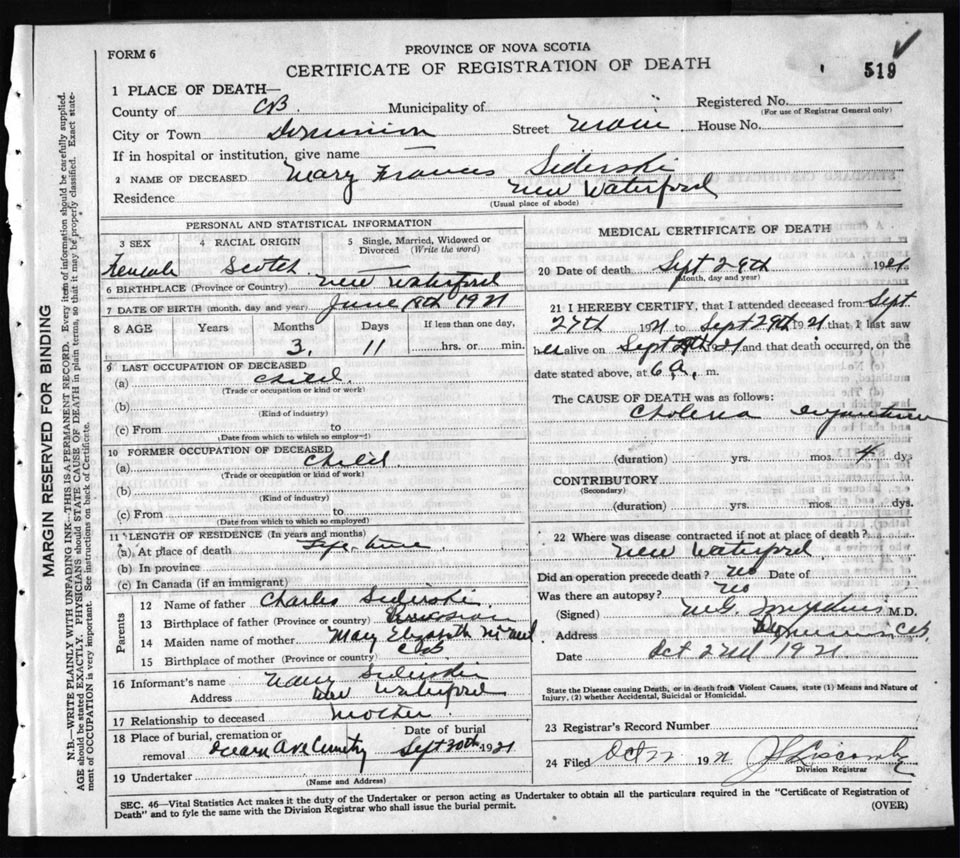 FORM 6
PROVINCE OF NOVA SCOTIA
CERTIFICATE OF REGISTRATION OF DEATH
519
MARGIN RESERVED FOR BINDING
N.B.—WRITE PLAINLY WITH UNFADING INK—THIS IS A PERMANENT RECORD. Every item of information should be carefully supplied.
AGE should be stated EXACTLY. PHYSICIANS should STATE CAUSE OF DEATH in plain terms, so that it may be properly classified. Exact state-
ment of OCCUPATION is very important. See instructions on back of Certificate.
1 PLACE OF DEATH—
County of CB. Municipality of Registered No.
(For use of Registrar General only)
City or Town Dominion Street Main House No.
If in hospital or institution, give name —
2 NAME OF DECEASED Mary Frances Siderski
Residence New Waterford
(Usual place of abode)
PERSONAL AND STATISTICAL INFORMATION
3 SEX 4 RACIAL ORIGIN 5 Single, Married, Widowed or Divorced (Write the word)
Female Scotch —
6 BIRTHPLACE (Province or Country) New Waterford
7 DATE OF BIRTH (month, day and year) June 18th 1921
8 AGE Years Months Days If less than one day,
3 11 hrs. or min.
9 LAST OCCUPATION OF DECEASED
(a) Child
(Trade or occupation or kind or work)
(b)
(Kind of industry)
(c) From to
(Date from which to which so employed)
10 FORMER OCCUPATION OF DECEASED
(a) Child.
(Trade or occupation or kind of work)
(b)
(Kind of industry)
(c) From to
(Date from which to which so employed)
11 LENGTH OF RESIDENCE (In years and months)
(a) At place of death Life time
(b) In province
(c) In Canada (if an immigrant)
Parents
12 Name of father Charles Siderski
13 Birthplace of father (Province or country)
14 Maiden name of mother Mary Elizabeth
15 Birthplace of mother (Province or country) CB
16 Informant's name Mary Siderski
Address New Waterford
17 Relationship to deceased Mother
18 Place of burial, cremation or removal Date of burial
Ocean Ave Cemetry Sept 30th 1921
19 Undertaker
(Name and Address)
MEDICAL CERTIFICATE OF DEATH
20 Date of death Sept 29th 1921
(Month, day and year)
21 I HEREBY CERTIFY, that I attended deceased from Sept
27th 1921 to Sept 29th 1921 that I last saw
her alive on Sept 29th 1921 and that death occurred, on the
date stated above, at 6 a. m.
The CAUSE OF DEATH was as follows:
Cholera
(duration) yrs. mos. 4 dys
CONTRIBUTORY
(Secondary)
(duration) yrs. mos. dys.
22 Where was disease contracted if not at place of death?
New Waterford
Did an operation precede death? No Date of
Was there an autopsy? No
(Signed) M.D.
Address Dominion, C.B.
Date Oct 2nd 1921.
State the Disease causing Death, or in death from Violent Causes, state (1) Means and Nature of
Injury, (2) whether Accidental, Suicidal or Homicidal.
23 Registrar's Record Number
24 Filed Oct 19
Division Registrar
SEC. 46—Vital Statistics Act makes it the duty of the Undertaker or person acting as Undertaker to obtain all the particulars required in the "Certificate of Registration of
Death" and to fyle the same with the Division Registrar who shall issue the burial permit.
(OVER)